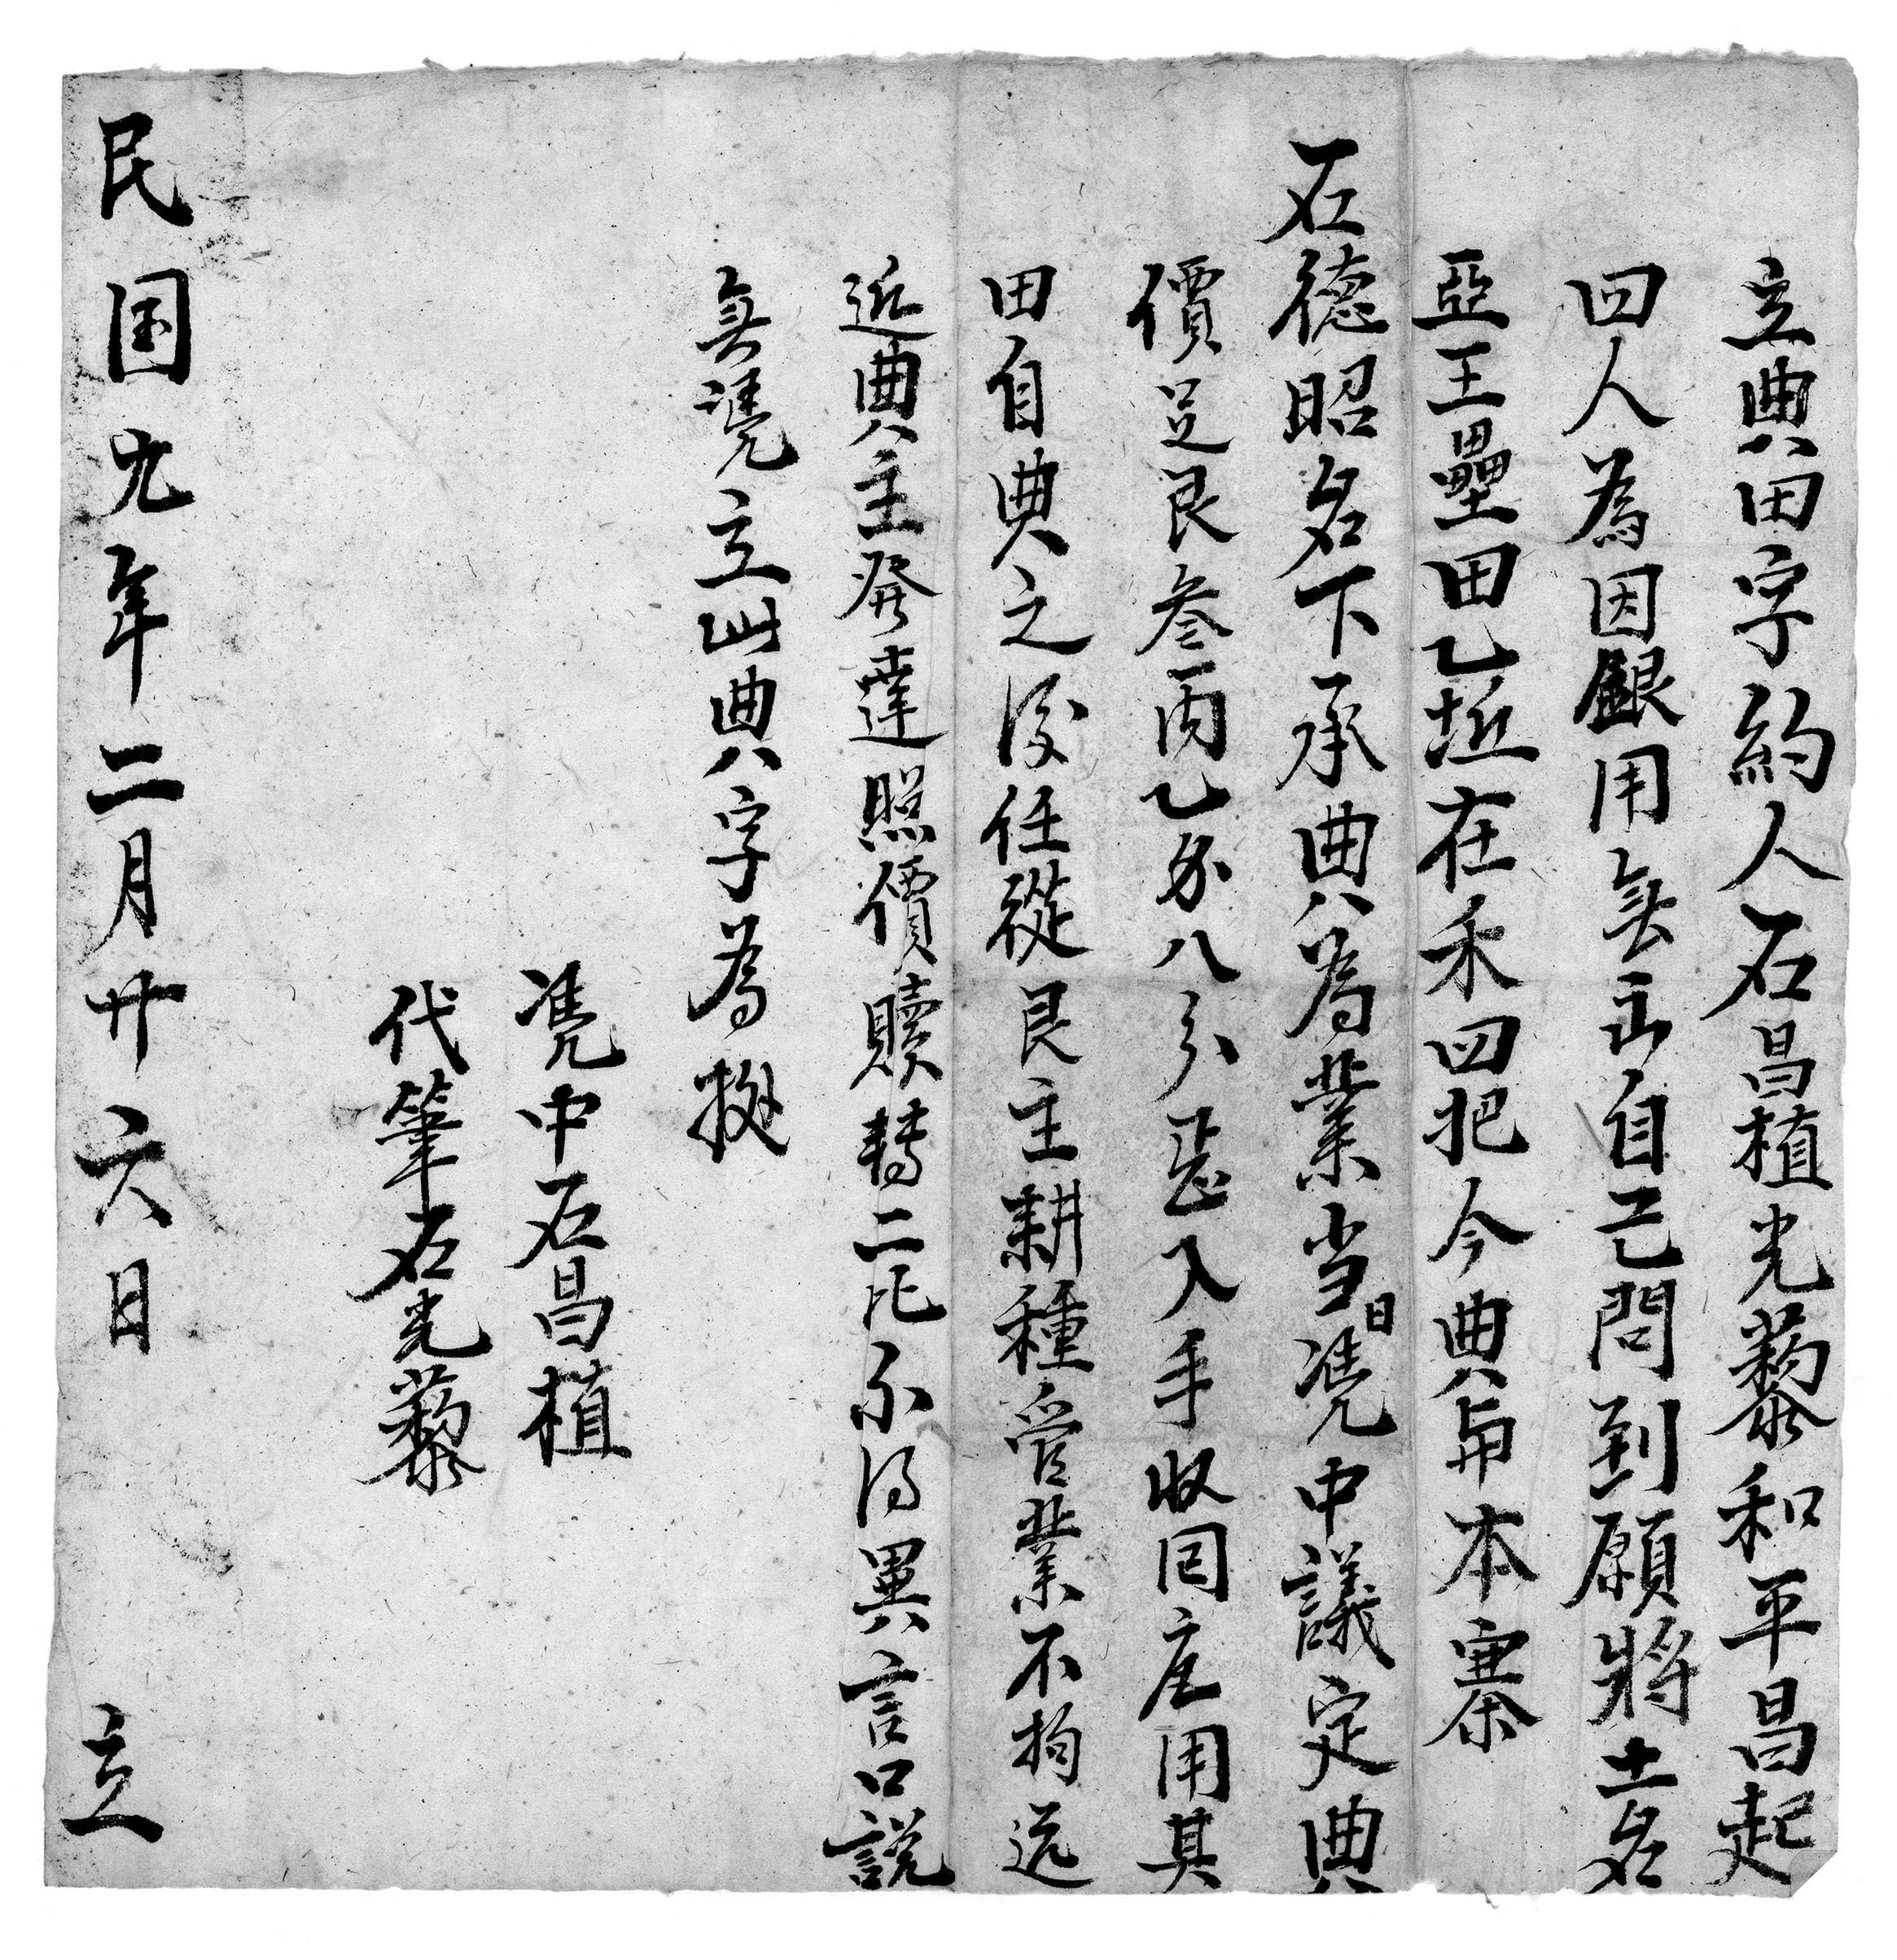 立典田字約人石昌植光藜和平昌起
四人為因銀用無出自己問到願將土名
亞王壘田乙坵在禾四把今典與本寨
石德昭名下承典為業当日凴中議定典
價足艮叁両乙錢八分遞入手收回應用其
田自典之後任從艮主耕種管業不拘远
近典主發達照價贖轉二比不得異言口説
無凴立此典字為據
凴中石昌植
代筆石光藜
民国九年二月廿六日 立